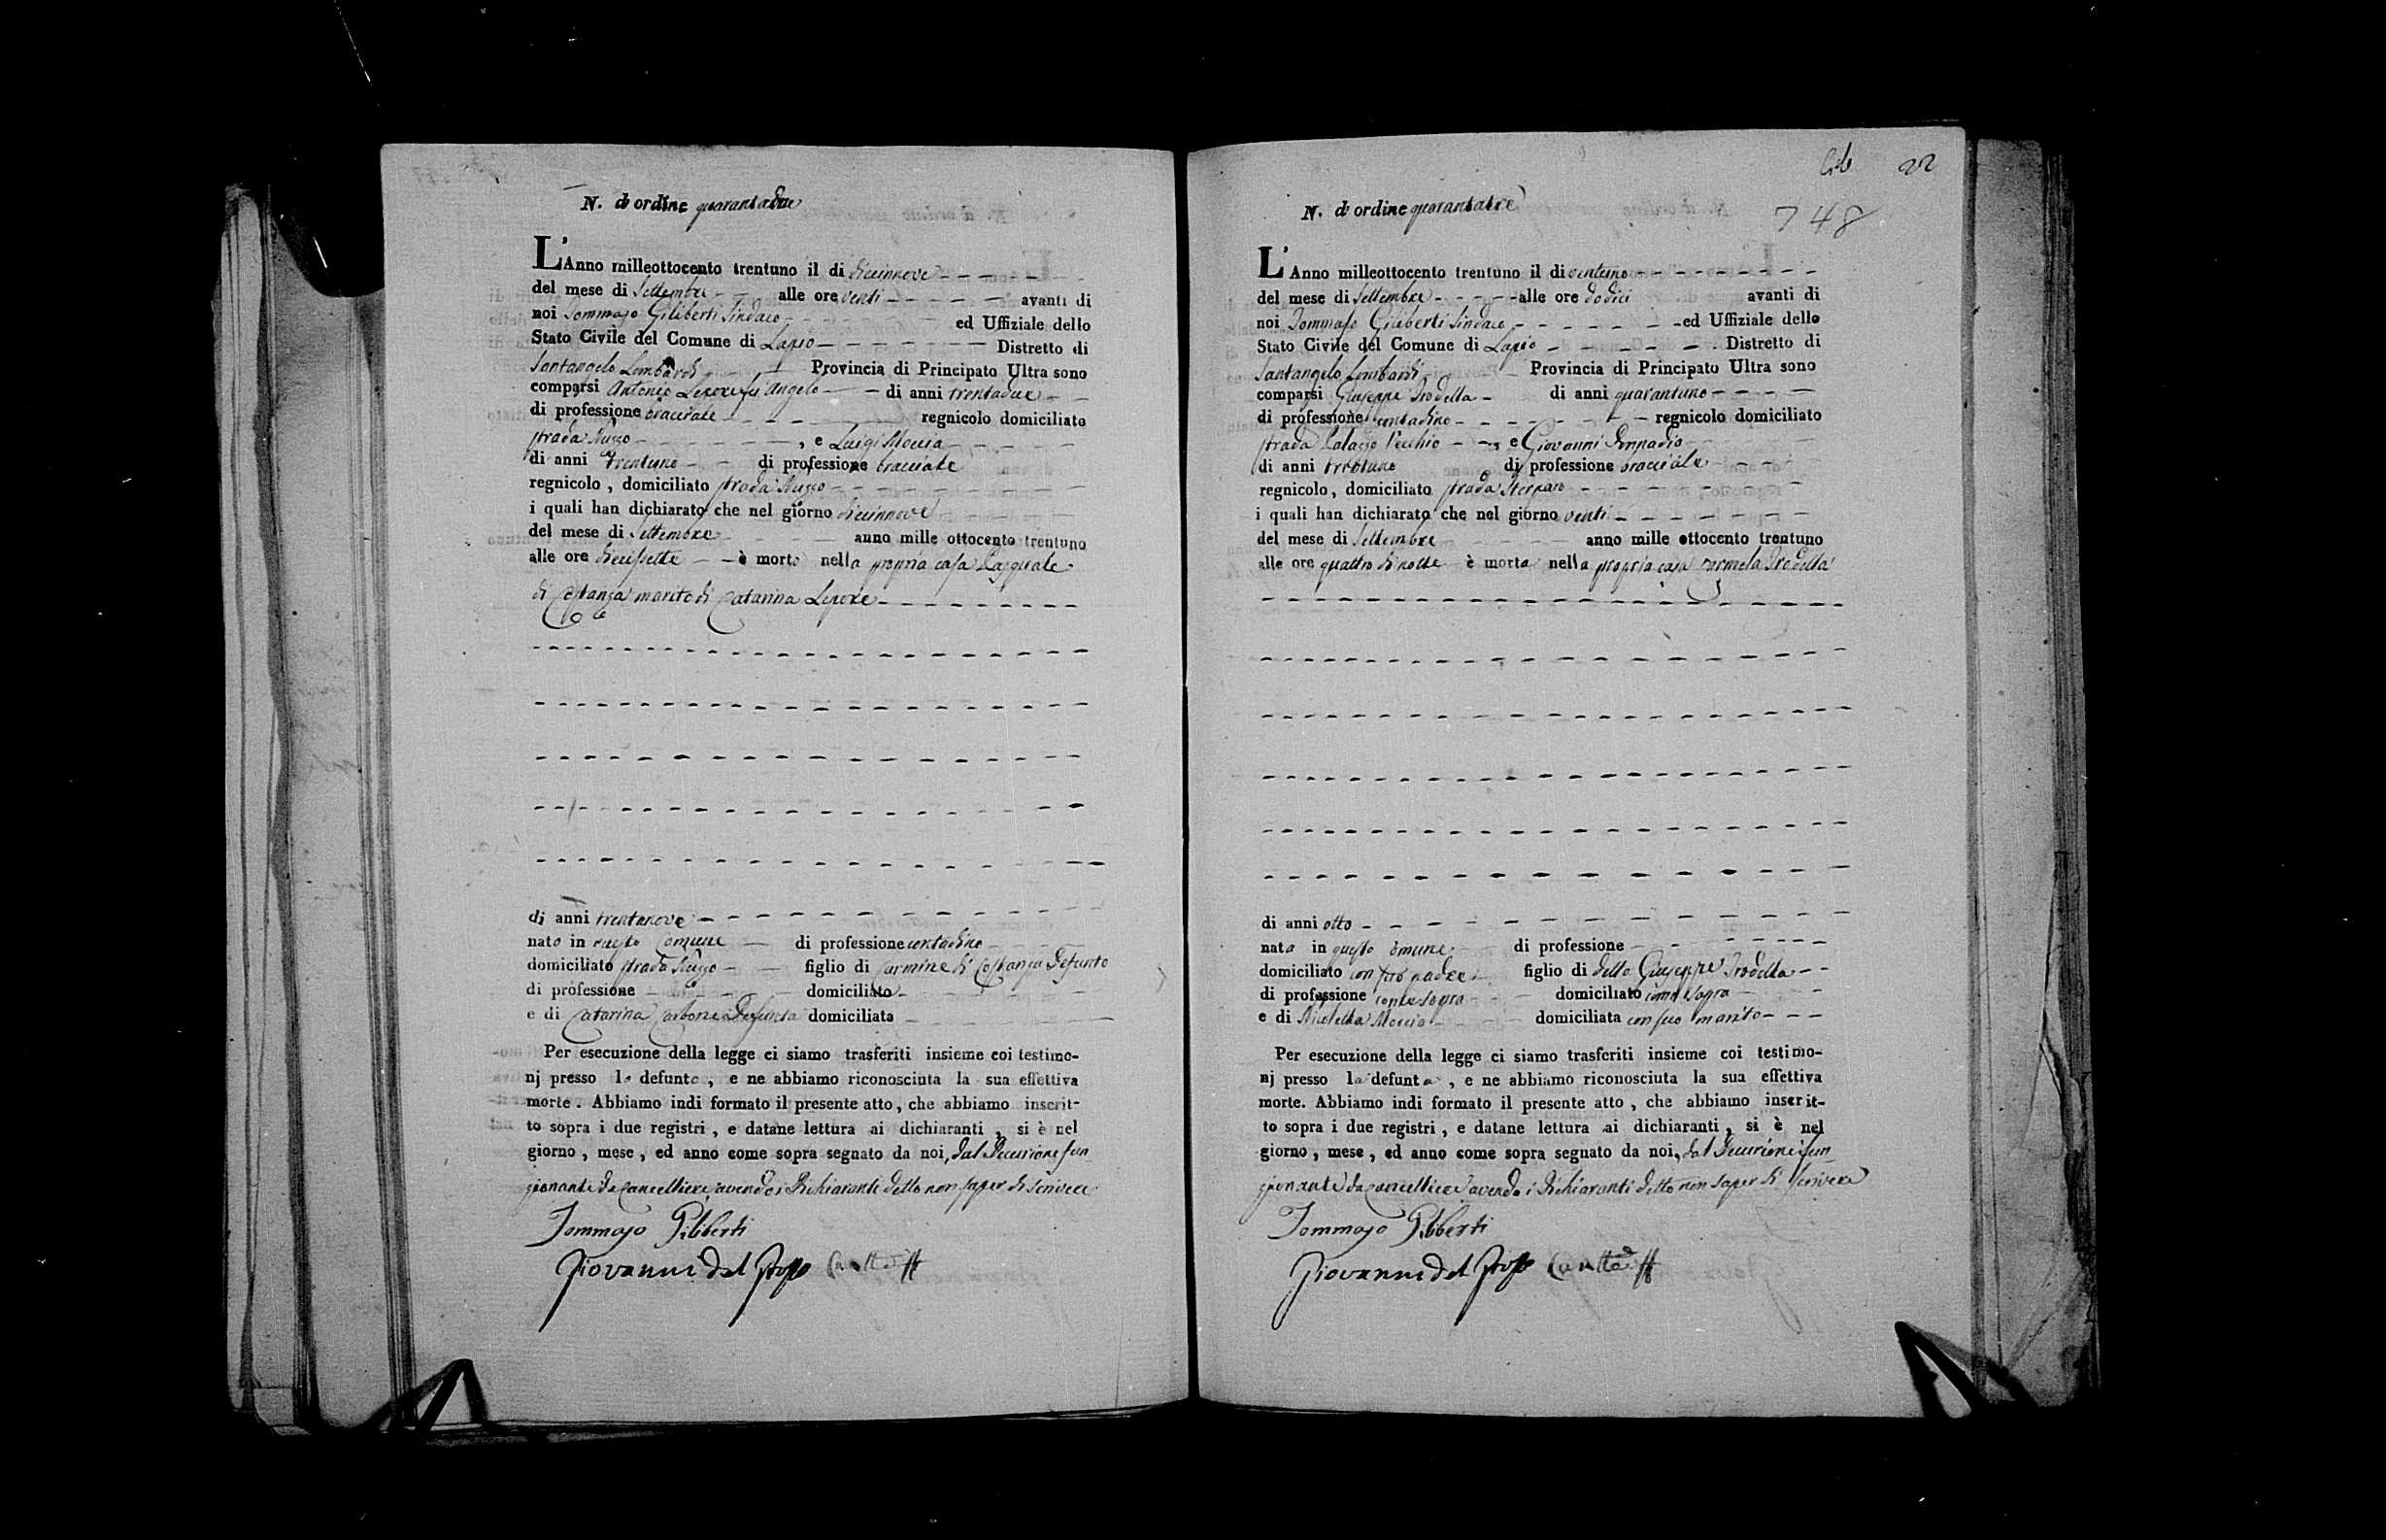 N. d'ordine quarantadue
L'Anno milleottocento trentuno il dì diciinnove
del mese di Settembre alle ore venti avanti di
noi Tommaso Giliberti Sindaco ed Uffiziale dello
Stato Civile del Comune di Lapio Distretto di
Santangelo Lombardi Provincia di Principato Ultra sono
comparsi Antonio Lepore fu Angelo di anni trentadue
di professione bracciale regnicolo domiciliato
strada , e Luigi Moccia
di anni trentuno di professione bracciale
regnicolo, domiciliato strada
i quali han dichiarato che nel giorno diciinnove
del mese di Settembre anno mille ottocento trentuno
alle ore diecissette è morto nella propria casa Pasquale
di Costanza marito di Catarina Lepore
di anni trentanove
nato in questo Comune di professione contadino
domiciliato strada figlio di Carmine di Costanza Defunto
di professione domiciliato
e di Catarina Carbone Defunta domiciliata
Per esecuzione della legge ci siamo trasferiti insieme coi testimo-
nj presso lo defunto, e ne abbiamo riconosciuta la sua effettiva
morte. Abbiamo indi formato il presente atto, che abbiamo inscrit-
to sopra i due registri, e datane lettura ai dichiaranti, si è nel
giorno, mese, ed anno come sopra segnato da noi, dal Decurione fun
zionante da Cancelliere avendo i Dichiaranti detto non saper di scrivere
Tommaso Giliberti
Giovanni del
Cib 22
748
N. d'ordine quarantatre
L'Anno milleottocento trentuno il dì ventuno
del mese di Settembre alle ore dodici avanti di
noi Tommaso Giliberti Sindaco ed Uffiziale dello
Stato Civile del Comune di Lapio Distretto di
Santangelo Lombardi Provincia di Principato Ultra sono
comparsi Giuseppe Trodella di anni quarantuno
di professione contadino regnicolo domiciliato
strada Palazzo Vecchio e Giovanni
di anni trentuno di professione bracciale
regnicolo, domiciliato strada
i quali han dichiarato che nel giorno venti
del mese di Settembre anno mille ottocento trentuno
alle ore quattro di notte è morta nella propria casa Carmela Trodella
di anni otto
nata in questo Comune di professione
domiciliato con suo padre figlio di detto Giuseppe Trodella
di professione come sopra domiciliato come sopra
e di Nicoletta Moccia domiciliata con suo marito
Per esecuzione della legge ci siamo trasferiti insieme coi testimo-
nj presso la defunta, e ne abbiamo riconosciuta la sua effettiva
morte. Abbiamo indi formato il presente atto, che abbiamo inscrit-
to sopra i due registri, e datane lettura ai dichiaranti, si è nel
giorno, mese, ed anno come sopra segnato da noi, dal Decurione fun
zionante da Cancelliere avendo i Dichiaranti detto non saper di scrivere
Tommaso Giliberti
Giovanni del